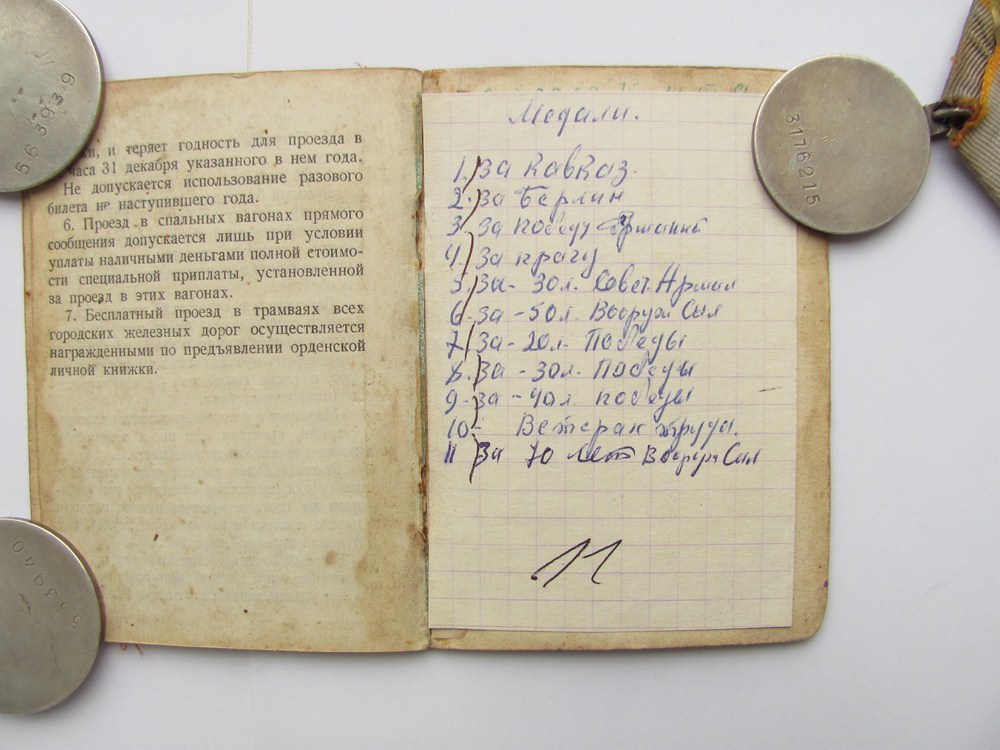 563939
ки, и теряет годность для проезда в
часа 31 декабря указанного в нем года.
Не допускается использование разового
билета не наступившего года.
6. Проезд в спальных вагонах прямого
сообщения допускается лишь при условии
уплаты наличными деньгами полной стоимо-
сти специальной приплаты, установленной
за проезд в этих вагонах.
7. Бесплатный проезд в трамваях всех
городских железных дорог осуществляется
награжденными по предъявлении орденской
личной книжки.
563940
Медали.
1. За Кавказ.
2. За Берлин
3. За победу Германий
4. За прагу
5. За - 30л. Совет. Армии
6. За - 50л. Вооруж Сил
7. За - 20л. Победы
8. За - 30л. Победы
9. За - 40л. победы
10 - Ветеран труда.
11 За 70 лет Вооруж Сил
11
3176215